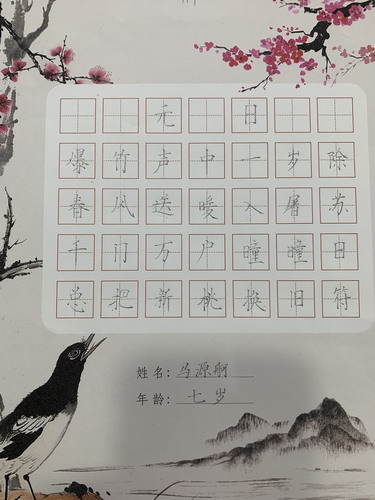 元日
爆竹声中一岁除
春风送暖入屠苏
千门万户曈曈日
总把新桃换旧符
姓名：马源啊
年龄：七岁